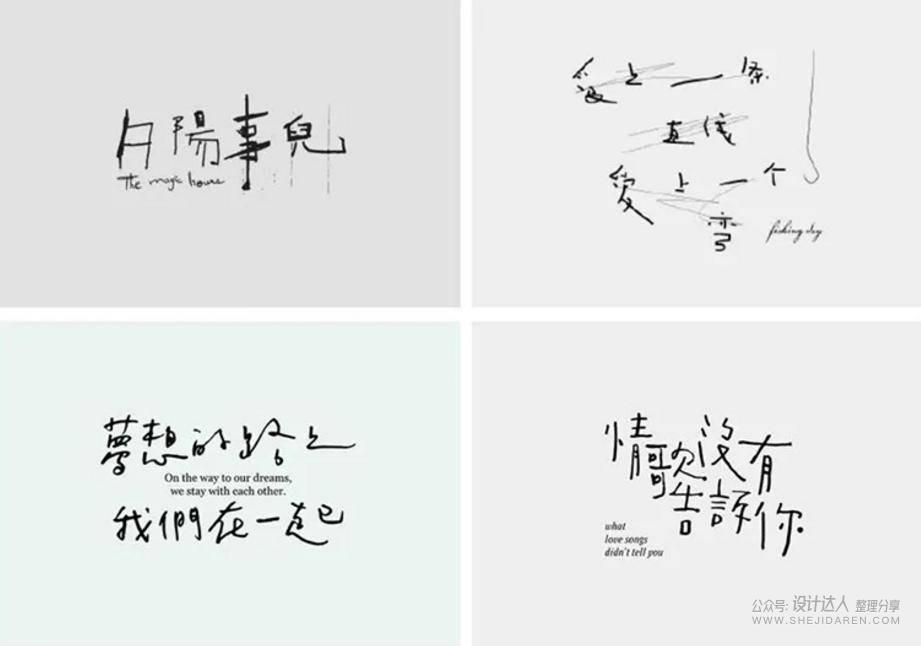 夕陽事兒
The magic
愛上一条
直线
愛上一个
弯
fishing day
夢想的路上
On the way to our dreams,
we stay with each other.
我們在一起
情歌沒有
告訴你
what
love songs
didn't tell you
公众号: 设计达人 整理分享
WWW.SHEJIDAREN.COM